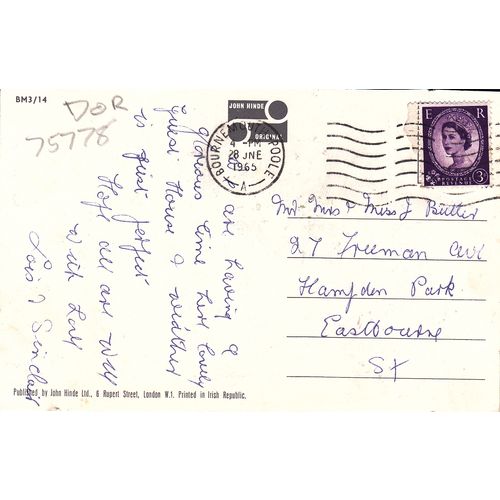 BM3/14
DOR
75778
JOHN HINDE
ORIGINAL
BOURNEMOUTH POOLE
4 - PM
28 JNE
1965
- A -
E R
POSTAGE
REVENUE
3D
We are having a
glorious time here lovely
Guest House & weather
is just perfect
Hope all are well
With Love
Lois & Sinclair
Mr Mrs & Miss J Butler
27 Freeman Ave
Hampden Park
Eastbourne
SX
Published by John Hinde Ltd., 6 Rupert Street, London W.1. Printed in Irish Republic.